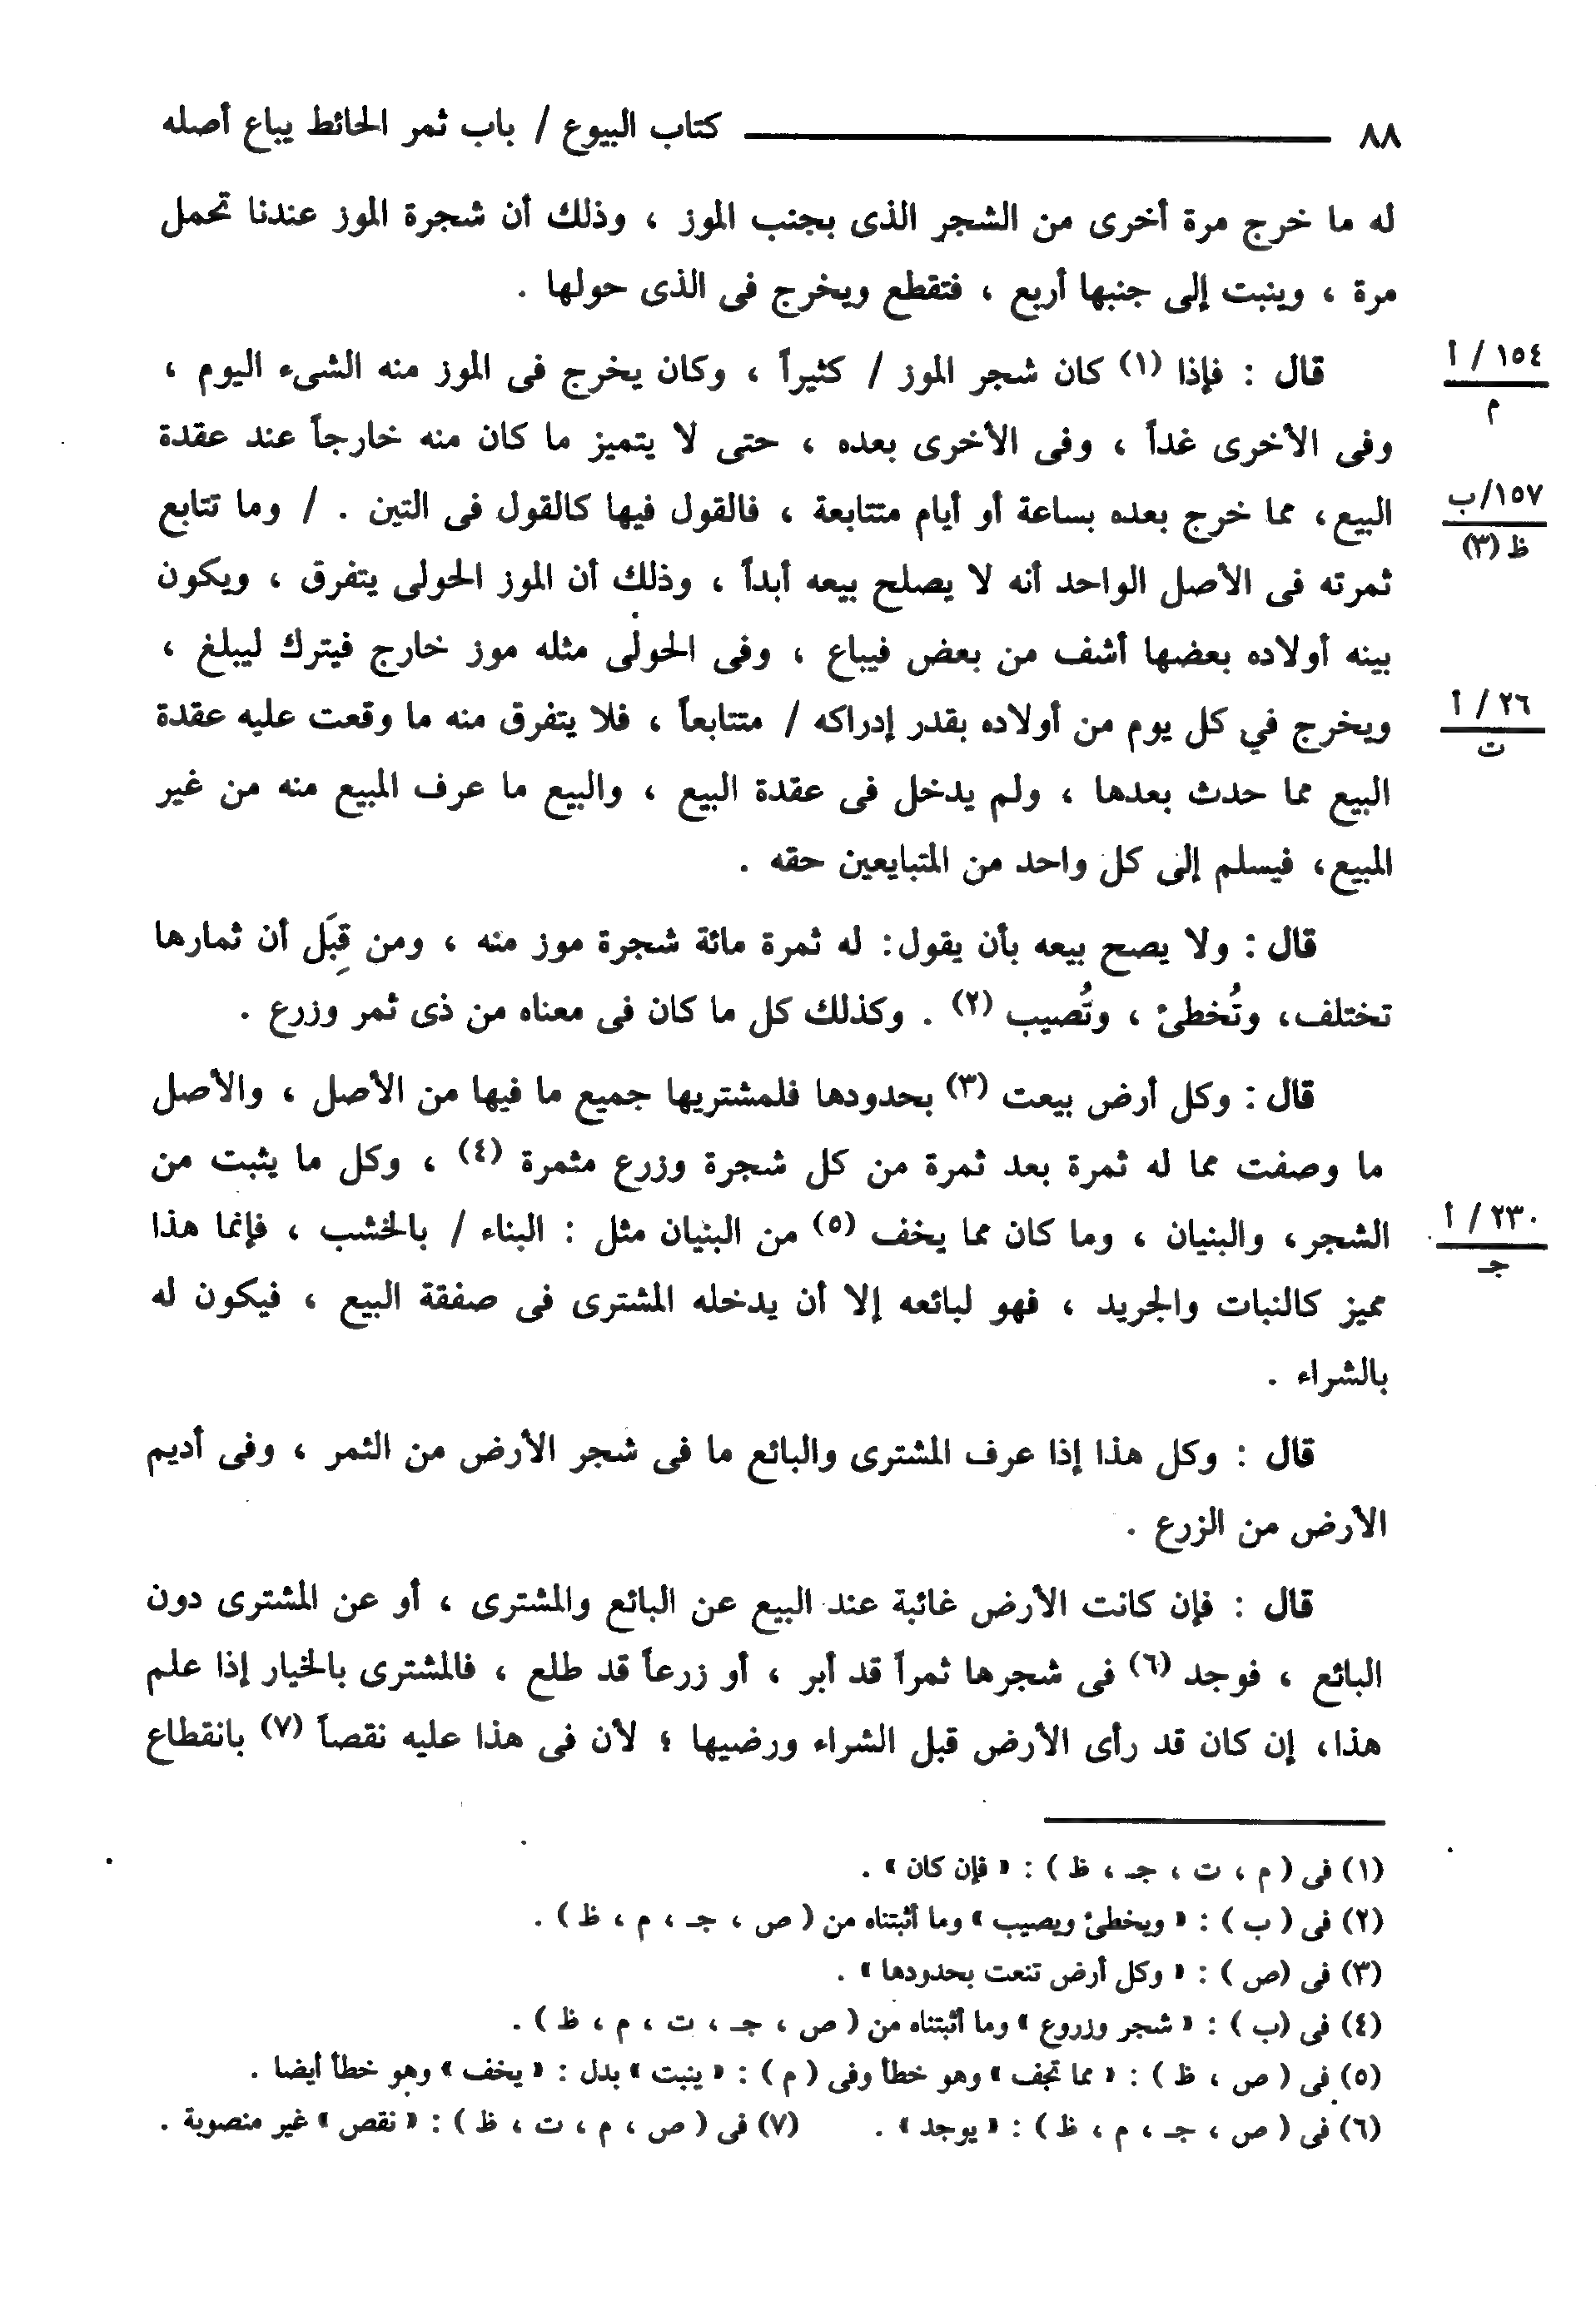 ٨٨ كتاب البيوع / باب ثمر الحائط يباع أصله
له ما خرج مرة أخرى من الشجر الذى بجنب الموز ، وذلك أن شجرة الموز عندنا تحمل
مرة ، وينبت إلى جنبها أربع ، فتقطع ويخرج فى الذى حولها .
قال : فإذا (١) كان شجر الموز / كثيراً ، وكان يخرج فى الموز منه الشىء اليوم ،
١٥٤ / أ
م
وفى الأخرى غداً ، وفى الأخرى بعده ، حتى لا يتميز ما كان منه خارجاً عند عقدة
البيع، مما خرج بعده بساعة أو أيام متتابعة ، فالقول فيها كالقول فى التين . / وما تتابع
١٥٧/ب
ظ (٣)
ثمرته فى الأصل الواحد أنه لا يصلح بيعه أبداً ، وذلك أن الموز الحولى يتفرق ، ويكون
بينه أولاده بعضها أشف من بعض فيباع ، وفى الحولى مثله موز خارج فيترك ليبلغ ،
ويخرج في كل يوم من أولاده بقدر إدراكه / متتابعاً ، فلا يتفرق منه ما وقعت عليه عقدة
٢٦ / أ
ت
البيع مما حدث بعدها ، ولم يدخل فى عقدة البيع ، والبيع ما عرف المبيع منه من غير
المبيع، فيسلم إلى كل واحد من المتبايعين حقه .
قال : ولا يصح بيعه بأن يقول: له ثمرة مائة شجرة موز منه ، ومن قِبَل أن ثمارها
تختلف، وتُخطئ ، وتُصيب (٢) . وكذلك كل ما كان فى معناه من ذى ثمر وزرع .
قال : وكل أرض بيعت (٣) بحدودها فلمشتريها جميع ما فيها من الأصل ، والأصل
ما وصفت مما له ثمرة بعد ثمرة من كل شجرة وزرع مثمرة (٤) ، وكل ما يثبت من
الشجر، والبنيان ، وما كان مما يخف (٥) من البنيان مثل : البناء / بالخشب ، فإنما هذا
٢٣٠ / أ
جـ
مميز كالنبات والجريد ، فهو لبائعه إلا أن يدخله المشترى فى صفقة البيع ، فيكون له
بالشراء .
قال : وكل هذا إذا عرف المشترى والبائع ما فى شجر الأرض من الثمر ، وفى أديم
الأرض من الزرع .
قال : فإن كانت الأرض غائبة عند البيع عن البائع والمشترى ، أو عن المشترى دون
البائع ، فوجد (٦) فى شجرها ثمراً قد أبر ، أو زرعاً قد طلع ، فالمشترى بالخيار إذا علم
هذا، إن كان قد رأى الأرض قبل الشراء ورضيها ؛ لأن فى هذا عليه نقصاً (٧) بانقطاع
(١) فى ( م ، ت ، جـ ، ظ ) : « فإن كان » .
(٢) فى ( ب ) : « ويخطئ ويصيب » وما أثبتناه من ( ص ، جـ ، م ، ظ ) .
(٣) فى (ص ) : « وكل أرض تنعت بحدودها » .
(٤) فى (ب ) : « شجر وزروع » وما أثبتناه من ( ص ، جـ ، ت ، م ، ظ ) .
(٥) فى ( ص ، ظ ) : « مما تجف » وهو خطأ وفى ( م ) : « ينبت » بدل : « يخف » وهو خطأ أيضا .
(٦) فى ( ص ، جـ ، م ، ظ ) : « يوجد » . (٧) فى ( ص ، م ، ت ، ظ ) : « نقص » غير منصوبة .